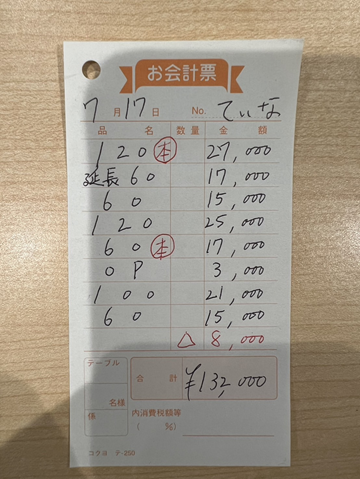 お会計票
7月17日 No. てぃな
品名 数量 金額
120 本 27,000
延長60 17,000
60 15,000
120 25,000
60 本 17,000
OP 3,000
100 21,000
60 15,000
△ 8,000
テーブル
名様
係
合計 ¥132,000
内消費税額等
( %)
コクヨ テ-250